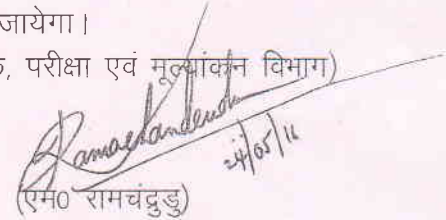 जायेगा।
, परीक्षा एवं मूल्यांकन विभाग)
Ramachandrudu
24/05/16
(एम0 रामचंद्रुडु)